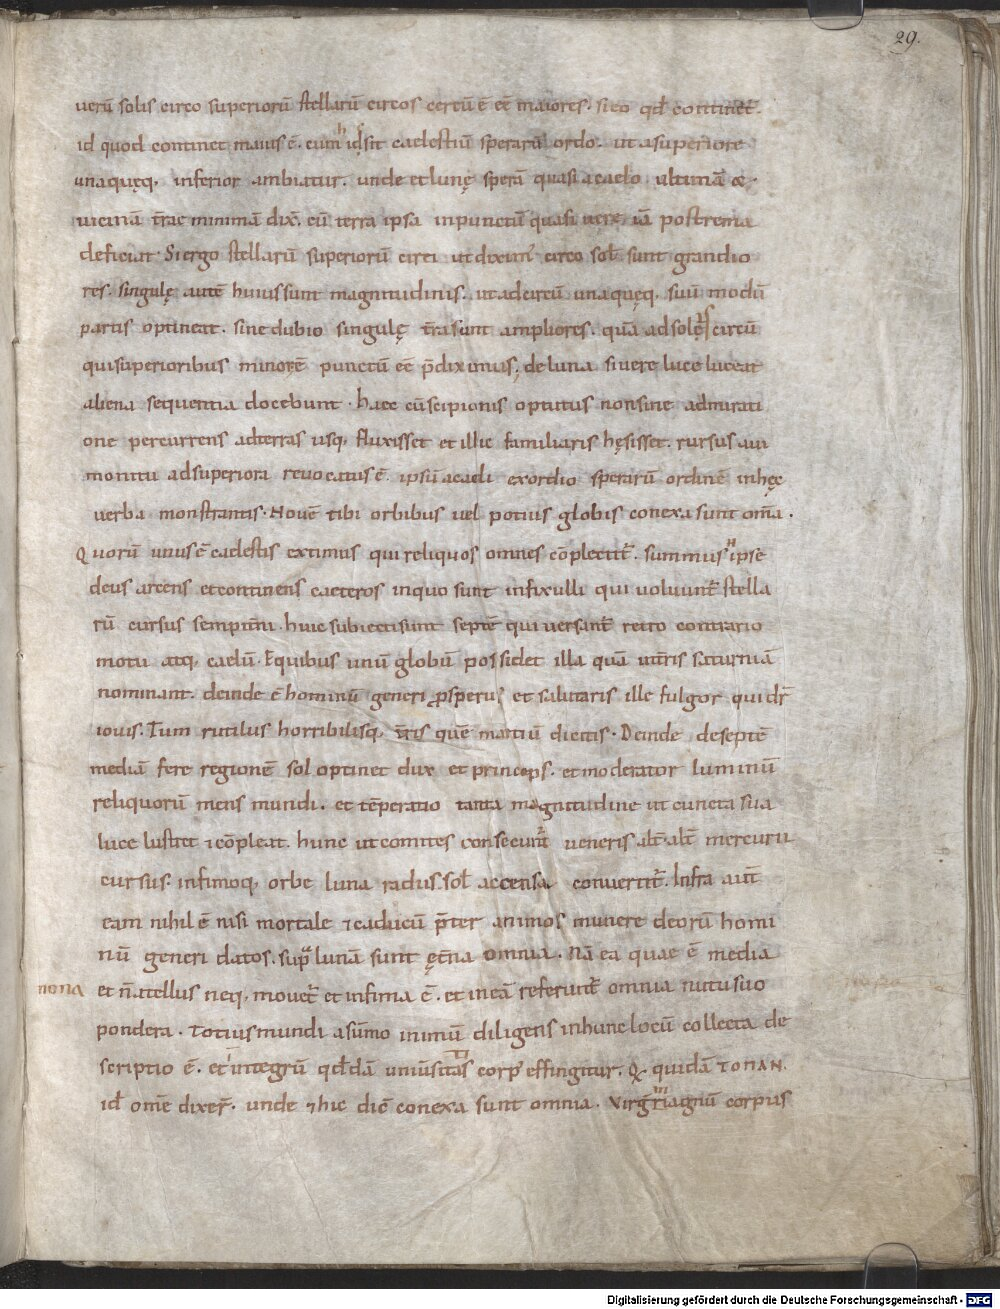 29.
uerū solis circo superiorū stellarū circos certū ē eē maiores. si eo qđ continet̄.
id quod continet maius ē. cum id sit caelestiū sperarū ordo. ut a superiore
una quęq, inferior ambiatur. unde et lunę sperā quasi a caelo ultimā &
uicinā t̄rae minimā dix̄. cū terra ipsa in punctū quasi uere iā postrema
deficiat. Si ergo stellarū superiorū circi ut diximꝰ circo sol̄ sunt grandio
res. singulę autē huius sunt magnitudinis. ut ad circū una quęq, suū modū
partis optineat. sine dubio singulę t̄ra sunt ampliores. quā ad solę circū
qui superioribus minorē punctū eē p̄diximus. de luna si uere luce luceat
aliena sequentia docebunt. haec cū scipionis optutus non sine admirati
one percurrens ad terras usq, fluxisset et illic familiaris hęsisset. rursus aui
monitu ad superiora reuocatus ē. ipsū a caeli exordio sperarū ordinē in hęc
uerba monstrantis. Nouē tibi orbibus uel potius globis conexa sunt om̄a.
Quorū unus ē caelestis extimus qui reliquos omnes cōplectit̄. summus ipse
deus arcens et continens caeteros in quo sunt infixi ulli qui uoluunt̄ stella
rū cursus sempit̄ni. huic subiecti sunt septē qui uersant̄ retro contrario
motu atq, caelū. E quibus unū globū possidet illa quā in t̄ris saturniā
nominant. deinde ē hominū generi ꝓsperus et salutaris ille fulgor qui dr̄
iouis. Tum rutilus horribilisq, t̄ris quē martiū dicitis. Deinde de septē
mediā fere regionē sol optinet dux et princeps. et moderator luminū
reliquorū mens mundi. et tēperatio tanta magnitudine ut cuncta sua
luce lustret ⁊ cōpleat. hunc ut comites consecunt̄ ueneris alt̄. alt̄ mercurii
cursus. infimoq, orbe luna radiis sol̄ accensa conuertit̄. Infra aut̄
eam nihil ē nisi mortale ⁊ caducū p̄ter animos munere deorū homi
nū generi datos. supͣ lunā sunt ęt̄na omnia. Nā ea quae ē media
nona et n̄ a tellus neq, mouet̄ et infima ē. et in eā referunt̄ omnia nutu suo
pondera. Totius mundi a sūmo in imū diligens in hunc locū collecta de
scriptio ē. et integrū qđdā uniūsitatis corpꝰ effingitur. Q̄ quidā TO NAN.
id om̄e dixer̄. unde ⁊ hic dic̄ conexa sunt omnia. Virḡ magnū corpus